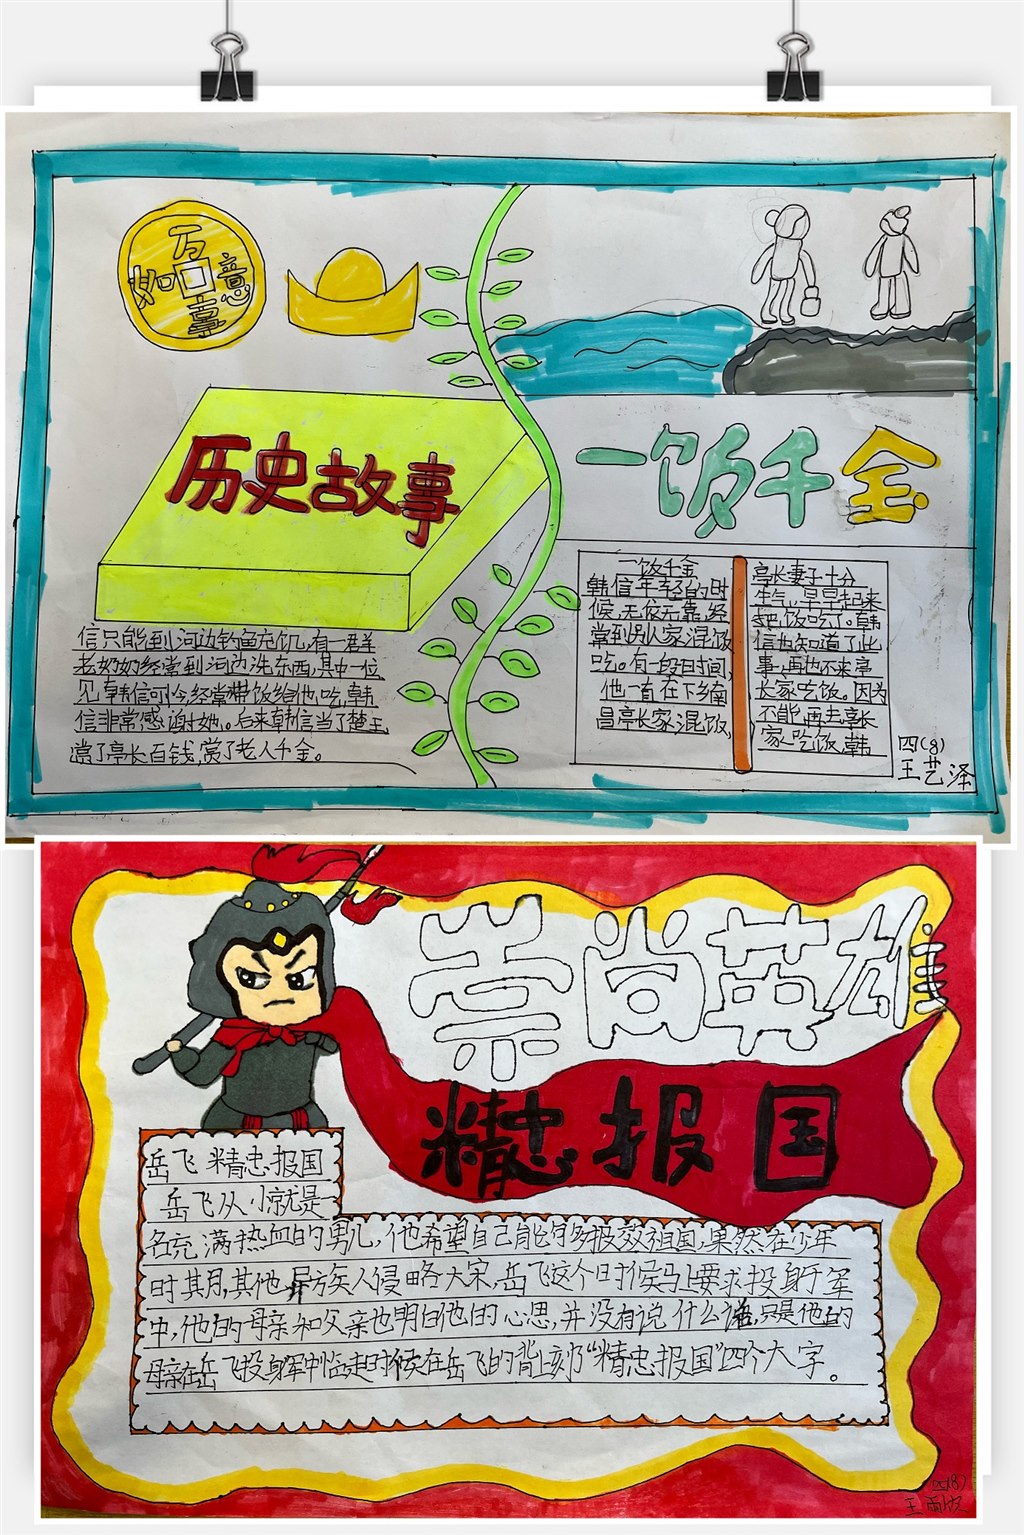 万
如
意
意
历史故事
一饭千金
一饭千金
韩信年轻的时
候,无依无靠,经
常到别人家混饭
吃。有一段日时间,
他一直在下乡南
昌亭长家混饭,
亭长妻子十分
生气,早早起来
把饭吃了。韩
信也知道了此
事,再也不来亭
长家吃饭。因为
不能再去亭长
家吃饭,韩
信只能到河边钓鱼充饥,有一群
老奶奶经常到河边洗东西,其中一位
见韩信可怜,经常带饭给他吃,韩
信非常感谢她。后来韩信当了楚王,
赏了亭长百钱,赏了老人千金。
四(8)
王艺泽
崇尚英雄
精忠报国
岳飞 精忠报国
岳飞从小就是一
名充满热血的男儿,他希望自己能够多报效祖国,果然在少年
时其月,其他异族人侵略大宋,岳飞这个时候马上要求投身于军
中,他的母亲和父亲也明白他的心思,并没有说什么,只是他的
母亲在岳飞投身军中临走时候在岳飞的背上刻了“精忠报国”四个大字。
四(8)
王雨